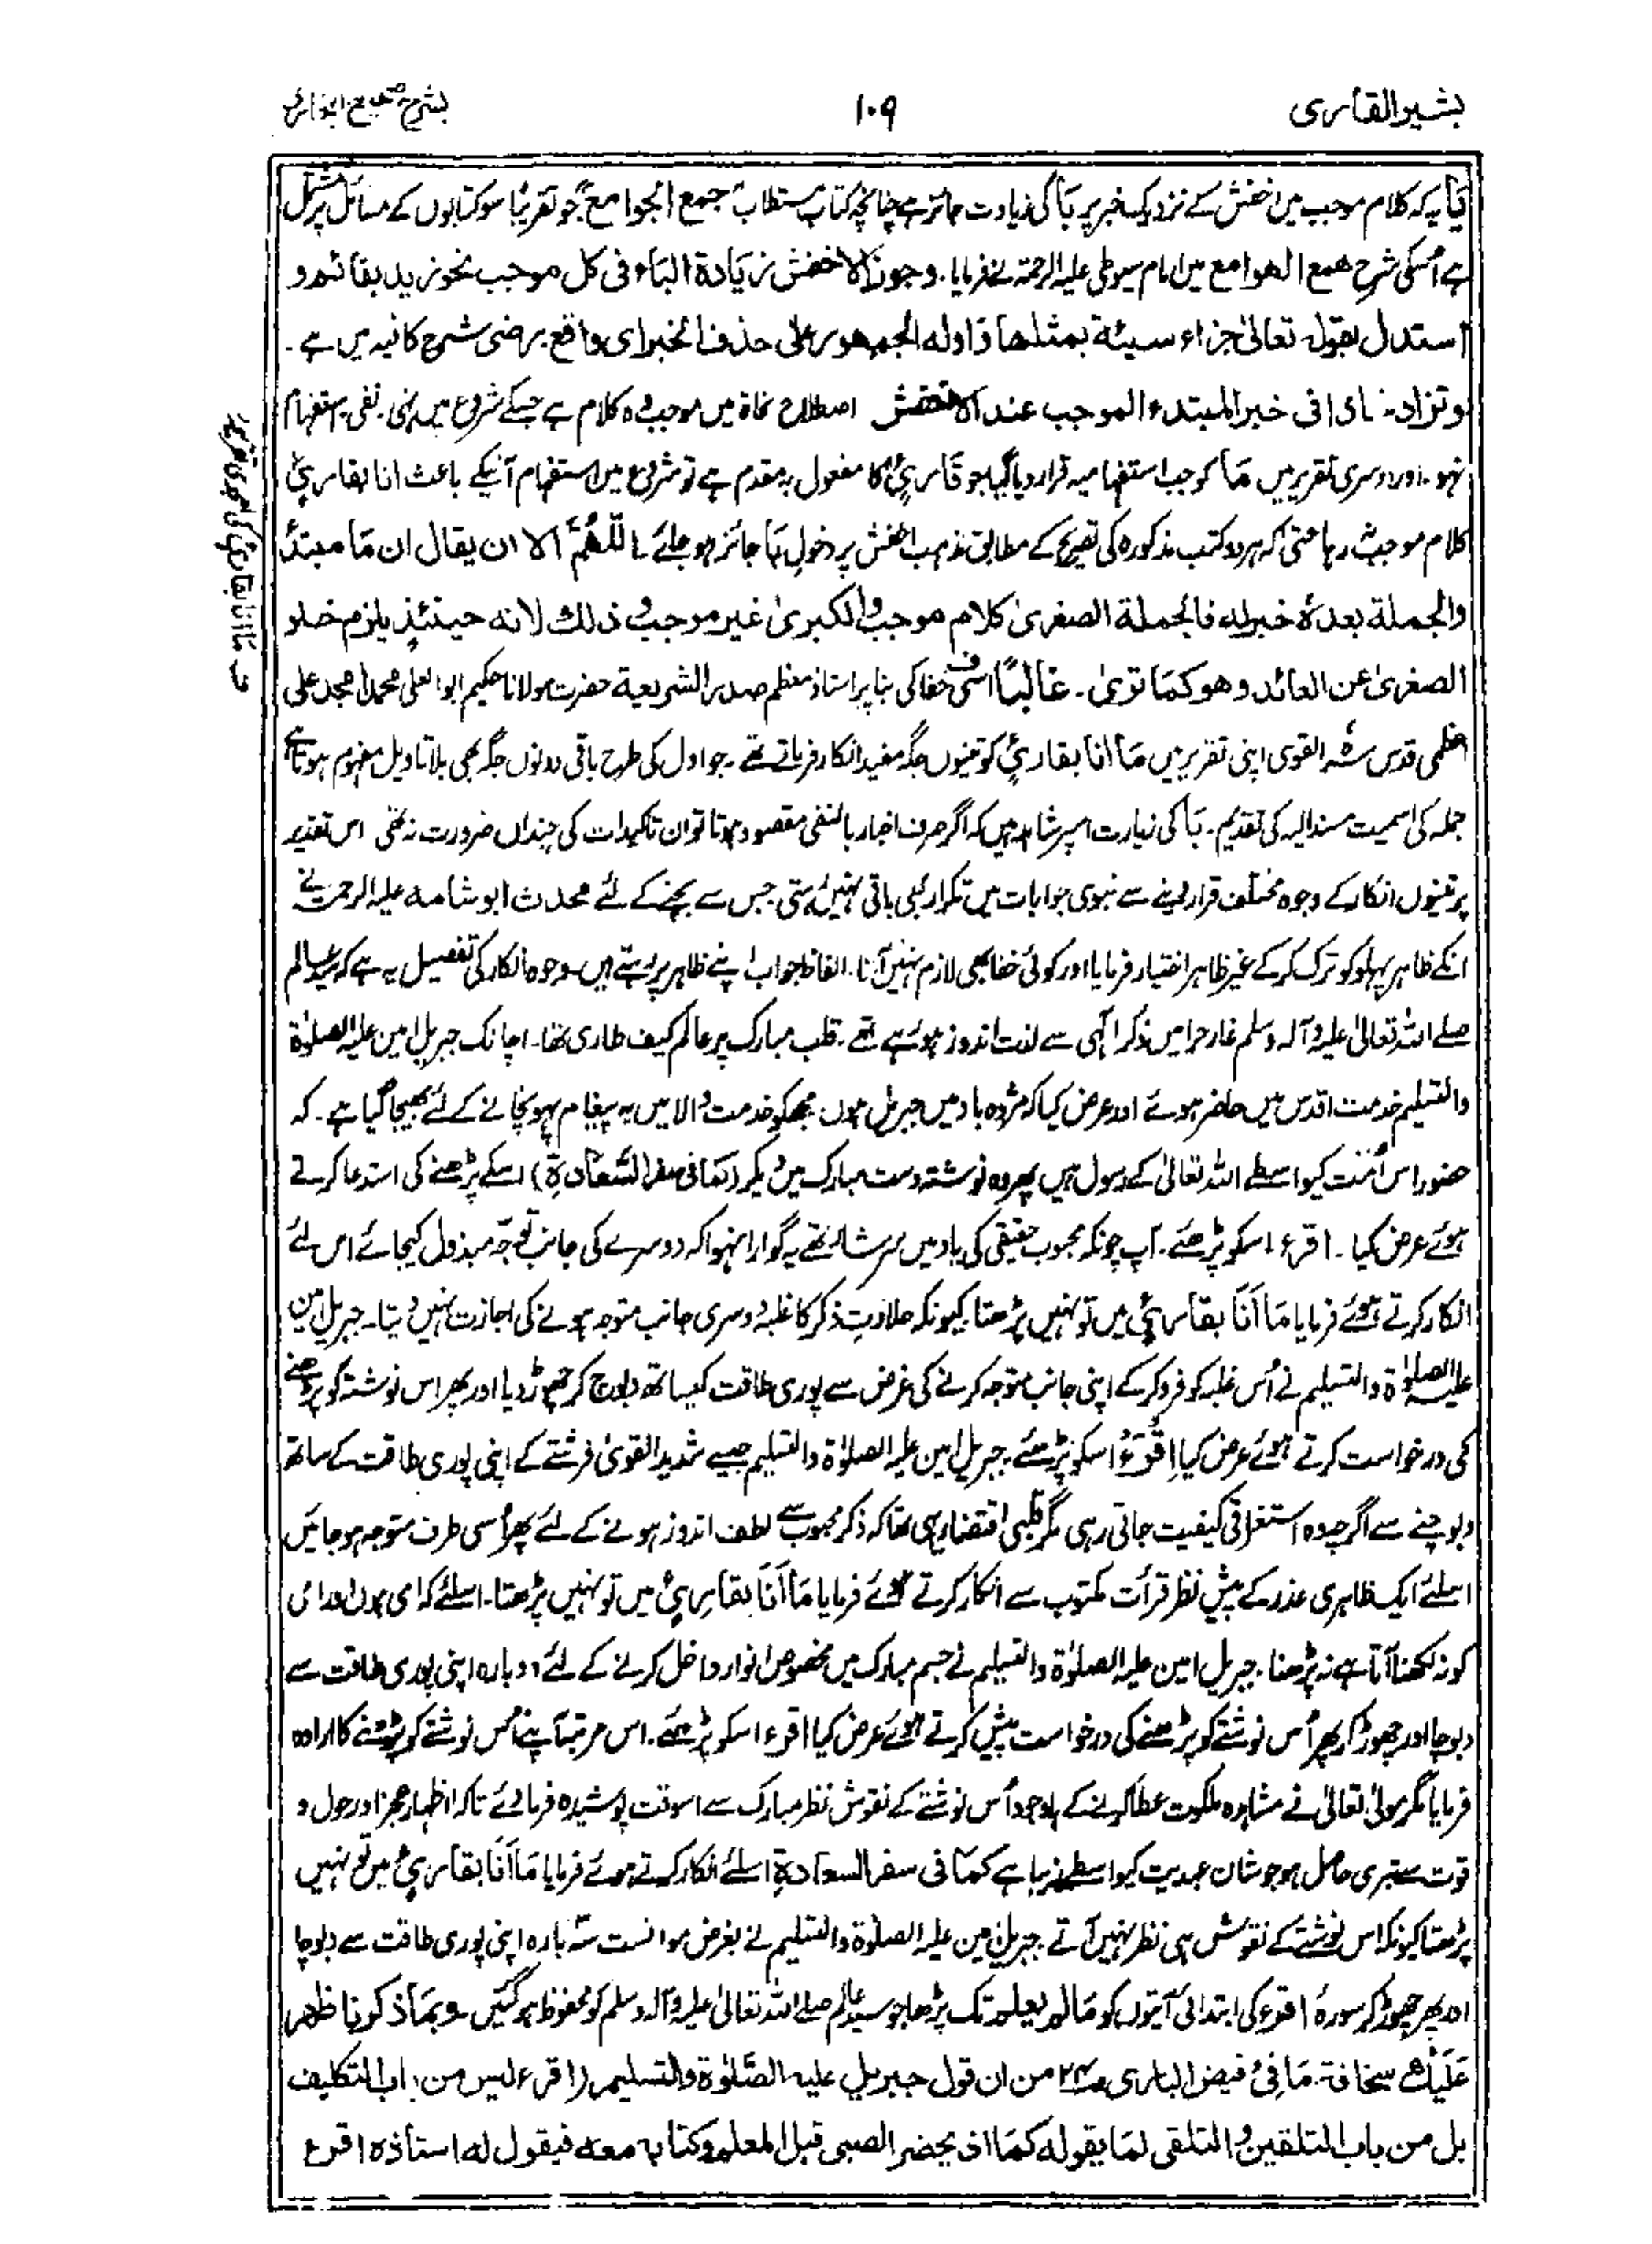 بشیر القاری
۱۰۹
بشرح صحیح البخاری
یہ کہ کلام موجب میں اخفش کے نزدیک خبر پر بَا کی زیادت جائز ہے چنانچہ کتاب مستطاب جمع الجوامع جو تقریباً سو کتابوں کے مسائل پر مشتمل
ہے اُسکی شرح همع الهوامع میں امام سیوطی علیہ الرحمۃ نے فرمایا۔ وجوز الاخفش زیادة الباء فی کل موجب نحو زید بقائم و
استدل بقولہ تعالیٰ جزاء سیئة بمثلها و اوله الجمهور علی حذف الخبر ای واقع۔ رضی شرح کافیہ میں ہے۔
و تزاد۔ فی خبر المبتدء الموجب عند الاخفش اصطلاح نحاۃ میں موجب وہ کلام ہے جسکے شروع میں نہی۔ نفی۔ استفہام
نہو۔ اور دوسری تقریر میں مَا کو جب استفہامیہ قرار دیا گیا جو قاریٔ کا مفعول بہ مقدم ہے تو شروع میں استفہام آنیکے باعث انا بقاریٔ
کلام موجب نہ رہا حتی کہ ہر دو کتب مذکورہ کی تصریح کے مطابق مذہب اخفش پر دخولِ بَا جائز ہو جائے۔ اللّٰهُمَّ الا ان یقال ان مَا مبتدأ
والجملة بعدہٗ خبر له فالجملة الصغریٰ کلام موجب والکبریٰ غیر موجب و ذلك لانه حینئذٍ یلزم خلو
الصغریٰ عن العائد و هو کما تریٰ۔ غالباً اسی خفا کی بنا پر استاذ معظم صدر الشریعة حضرت مولانا حکیم ابو العلیٰ محمد امجد علی
اعظمی قدس سرُّہ القوی اپنی تقریر میں مَا انا بقاریٔ کو تینوں جگہ مفید انکار فرماتے تھے۔ جو اول کی طرح باقی دونوں جگہ بھی بلا تاویل مفہوم ہوتا ہے
جملہ کی اسمیت مسند الیہ کی تقدیم۔ بَا کی زیادت اسپر شاہد ہیں کہ اگر صرف اخبار بالنفی مقصود ہوتا تو ان تاکیدات کی چنداں ضرورت نہ تھی اس تقدیر
پر تینوں انکار کے وجوہ مختلف قرار دینے سے نبوی جوابات میں تکرار بھی باقی نہیں رہتی جس سے بچنے کے لئے محدث ابو شامہ علیہ الرحمۃ نے
انکے ظاہر پہلو کو ترک کر کے غیر ظاہر اختیار فرمایا اور کوئی خفا بھی لازم نہیں آتا۔ الفاظ جواب اپنے ظاہر پر رہتے ہیں۔ وجوہ انکار کی تفصیل یہ ہے کہ سید عالم
صلے اللہ تعالیٰ علیہ وآلہ وسلم غار حرا میں ذکر الٰہی سے لذت اندوز ہو رہے تھے۔ قلب مبارک پر عالم کیف طاری تھا۔ اچانک جبریل امین علیہ الصلوٰۃ
والتسلیم خدمت اقدس میں حاضر ہوئے اور عرض کیا کہ مژدہ باد میں جبریل ہوں مجھکو خدمت والا میں یہ پیغام پہونچانے کے لئے بھیجا گیا ہے۔ کہ
حضور اس اُمت کیواسطے اللہ تعالیٰ کے رسول ہیں پھر وہ نوشتہ دست مبارک میں دیکر (کما فی سفر السَّعَادة) اسکے پڑھنے کی استدعا کرتے
ہوئے عرض کیا۔ اقرء اسکو پڑھئے۔ آپ چونکہ محبوب حقیقی کی یاد میں سرشار تھے یہ گوارا نہوا کہ دوسرے کی جانب توجہ مبذول کیجائے اس لئے
انکار کرتے ہوئے فرمایا مَا اَنَا بقاریٔ میں تو نہیں پڑھتا۔ کیونکہ حلاوتِ ذکر کا غلبہ دوسری جانب متوجہ ہونے کی اجازت نہیں دیتا۔ جبریل امین
علیہ الصلوٰۃ والتسلیم نے اُس غلبہ کو فرو کر کے اپنی جانب متوجہ کرنے کی غرض سے پوری طاقت کیساتھ دبوچ کر چھوڑ دیا اور پھر اس نوشتہ کو پڑھنے
کی درخواست کرتے ہوئے عرض کیا اِقْرَءْ اسکو پڑھئے۔ جبریل امین علیہ الصلوٰۃ والتسلیم جیسے شدید القویٰ فرشتے کے اپنی پوری طاقت کے ساتھ
دبوچنے سے اگرچہ وہ استغراقی کیفیت جاتی رہی مگر قلبی اقتضا یہی تھا کہ ذکر محبوب سے لطف اندوز ہونے کے لئے پھر اُسی طرف متوجہ ہو جائیں
اسلئے ایک ظاہری عذر کے پیش نظر قرأت مکتوب سے انکار کرتے ہوئے فرمایا مَا اَنَا بقاریٔ میں تو نہیں پڑھتا۔ اسلئے کہ امی ہوں اور امی
کو نہ لکھنا آتا ہے نہ پڑھنا۔ جبریل امین علیہ الصلوٰۃ والتسلیم نے جسم مبارک میں مخصوص انوار داخل کرنے کے لئے دوبارہ اپنی پوری طاقت سے
دبوچا اور چھوڑ کر پھر اُس نوشتے کو پڑھنے کی درخواست پیش کرتے ہوئے عرض کیا اقرء اسکو پڑھئے۔ اس مرتبہ آپ نے اُس نوشتے کو پڑھنے کا ارادہ
فرمایا مگر مولیٰ تعالیٰ نے مشاہدہ ملکوت عطا کرنے کے باوجود اُس نوشتے کے نقوش نظر مبارک سے اسوقت پوشیدہ فرما دئے تاکہ اظہار عجز اور حول و
قوت سے تبری حاصل ہو جو شان عبدیت کیواسطے زیبا ہے کما فی سفر السعادة اسلئے انکار کرتے ہوئے فرمایا مَا اَنَا بقاریٔ میں تو نہیں
پڑھتا کیونکہ اس نوشتے کے نقوش ہی نظر نہیں آتے۔ جبریل امین علیہ الصلوٰۃ والتسلیم نے بغرض موانست سہ بارہ اپنی پوری طاقت سے دبوچا
اور پھر چھوڑ کر سورہ اقرء کی ابتدائی آیتوں کو مَا لم یعلم تک پڑھا جو سید عالم صلے اللہ تعالیٰ علیہ وآلہ وسلم کو محفوظ ہو گئیں۔ و بما ذکرنا ظهر
عَلَیْكَ سخافة مَا فِیْ فیض الباری ص۲۳ من ان قول جبریل علیه الصَّلوٰة والتسلیم (اقرء لیس من باب التکلیف
بل من باب التلقین و التلقی لما یقوله کما اذ یحضر الصبی قبل المعلم و کتابه معه فیقول له استاذہ اقرء